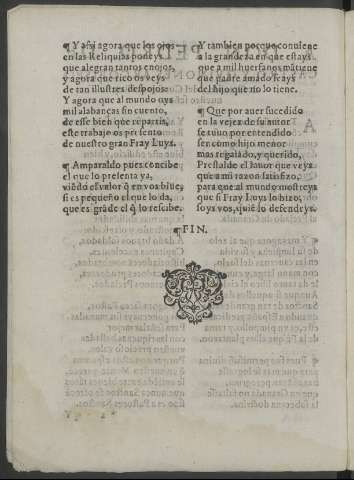 ¶ Y assi agora que los ojos
en las Reliquias poneys
que alegran tantos enojos,
y agora que rico os veys
de tan illustres despojos:
Y agora que al mundo days
mil alabanças sin cuento,
de esse bien que repartis,
este trabajo os presento
de nuestro gran Fray Luys.
¶ Amparaldo pues concibe
el que lo presenta ya,
viẽdo el valor q̃ en vos biue,
si es pequeño el que lo da,
que es grãde el q̃ lo rescibe.
Y tambien porque conuiene
a la grandeza en que estays
que a mil huerfanos mãtiene
que padre amado seays
del hijo que no lo tiene.
¶ Que por auer sucedido
en la vejez de su autor
se tuuo por entendido
ser como hijo menor
mas regalado, y querido,
Prestalde el fauor que veys
que a mi razon satisfizo,
para que al mundo mostreys
que si Fray Luys lo hizo,
soys vos, quiẽ lo defendeys.
¶ FIN.